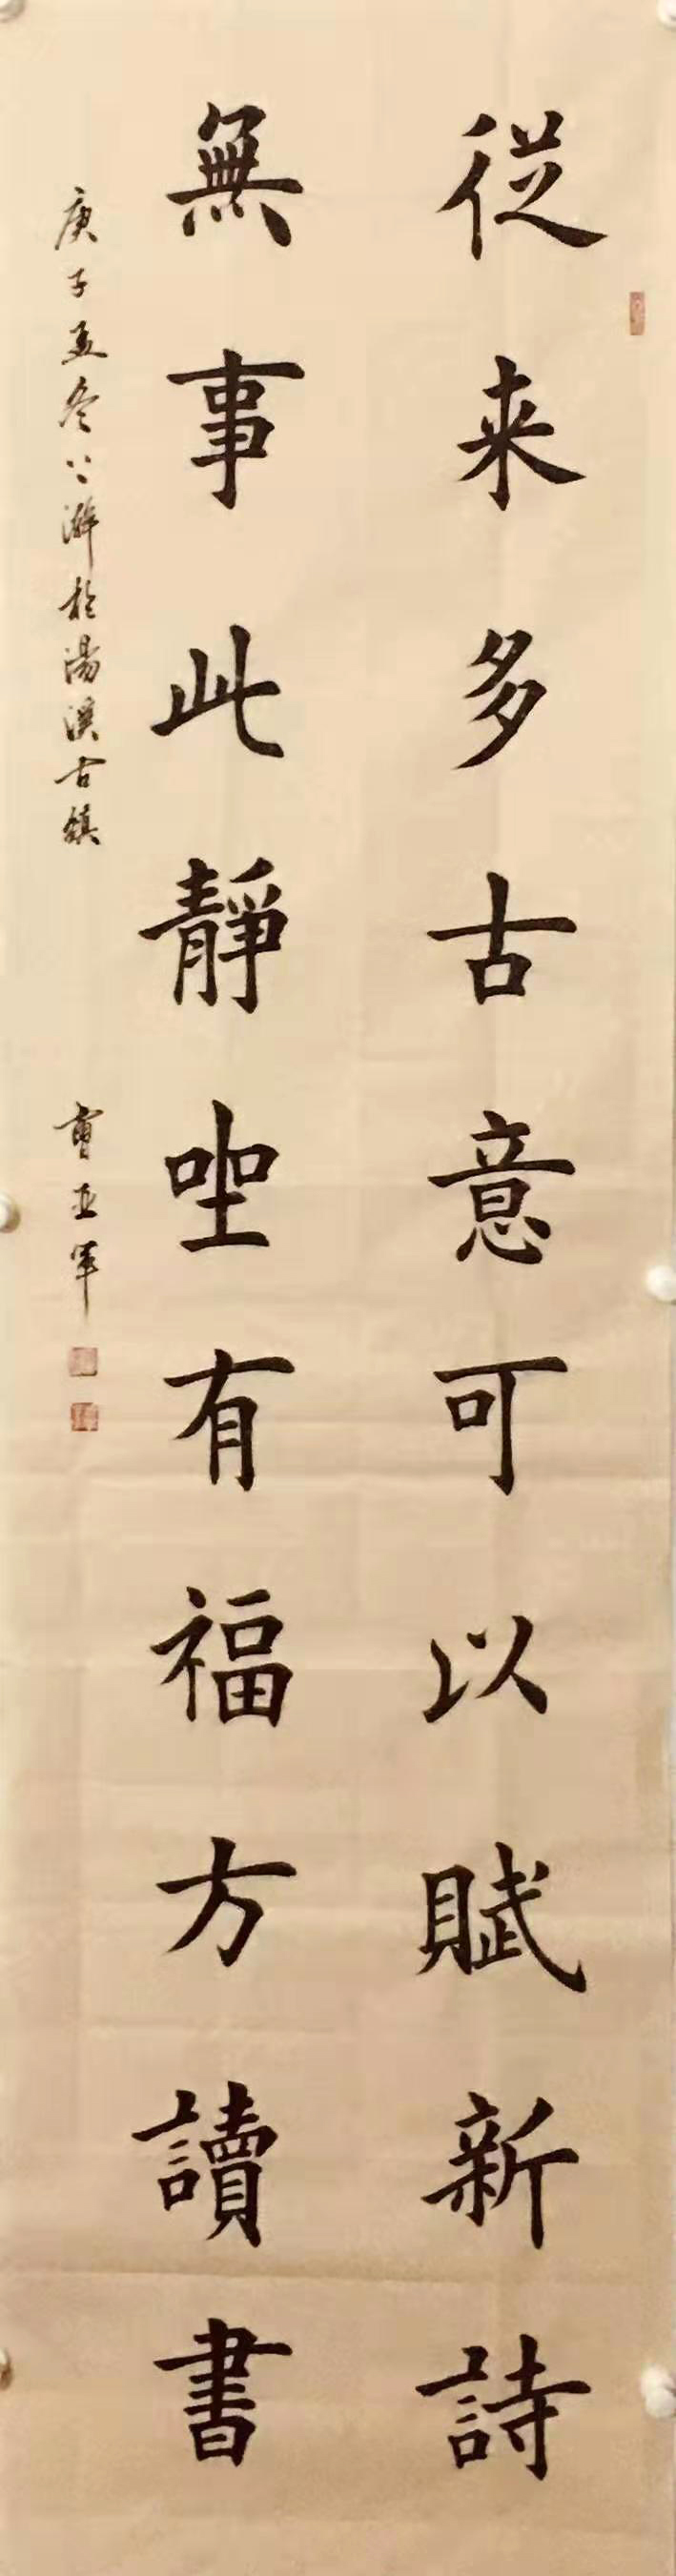 従来多古意可以賦新詩
無事此靜唑有福方讀書
庚子孟冬 於湯溪古鎮
曹亚军